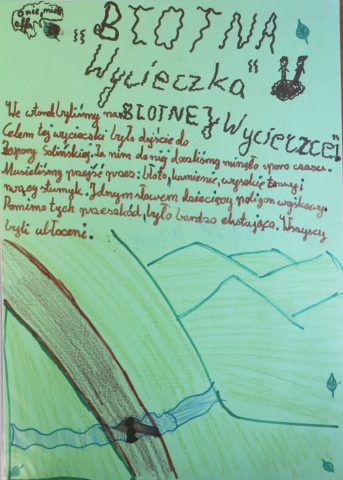 "BŁOTNA
Wycieczka"
We wtorek byliśmy na BŁOTNEJ Wycieczce!
Celem tej wycieczki było dojście do
Zapory Solińskiej. Za nim do niej doszliśmy minęło sporo czasu.
Musieliśmy przejść przez: błoto, kamienie, wysokie trawy i
rwący strumyk. Jednym słowem dziecięcy poligon wojskowy.
Pomimo tych przeszkód, było bardzo ekscytująco. Wszyscy
byli ubłoceni.